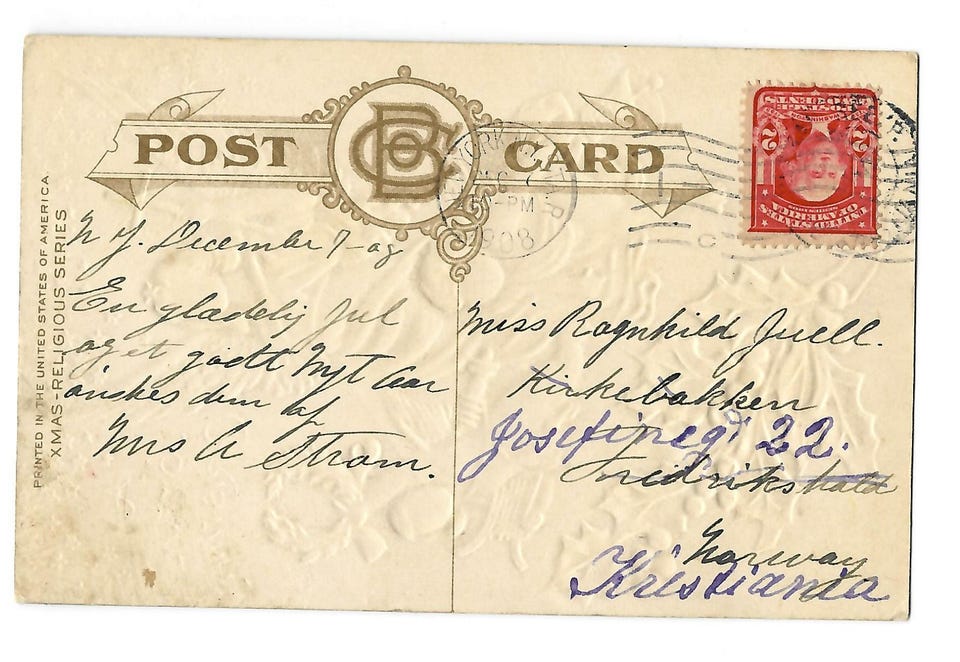 POST CARD
N.Y. December 7-08
En gladelig Jul
og et godt Nyt Aar
önskes dem af
Mrs A Strom.
PRINTED IN THE UNITED STATES OF AMERICA.
XMAS-RELIGIOUS SERIES
YORK, N.Y.
PM
1908
2 2
UNITED STATES
OF AMERICA
Miss Ragnhild Juell.
Kirkebakken
Josefinegt 22.
Fredrikshald
Norway
Kristiania